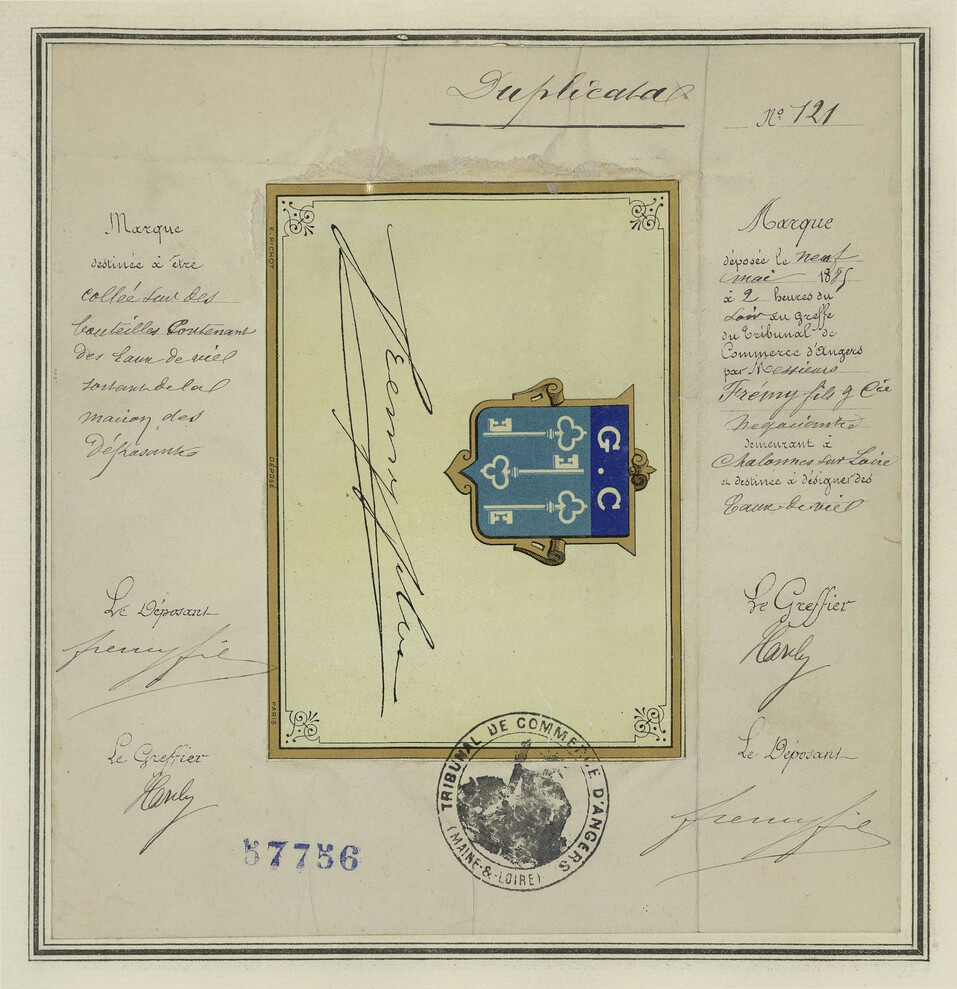 Duplicata
Nº 121
Marque
destinée à être
collée sur des
bouteilles contenant
des Eaux de vie
sortant de la
maison des
Déposants
Le Déposant
Fremy fils
Le Greffier
57756
E. PICHOT
DÉPOSÉ
PARIS
G.C
TRIBUNAL DE COMMERCE D'ANGERS
(MAINE-&-LOIRE)
Marque
déposée le neuf
mai 1885
à 2 heures du
soir au greffe
du Tribunal de
Commerce d'Angers
par Messieurs
Frémy fils & Cie
Négociants
demeurant à
Chalonnes sur Loire
et destinée à désigner des
Eaux de vie
Le Greffier
Le Déposant
Fremy fils